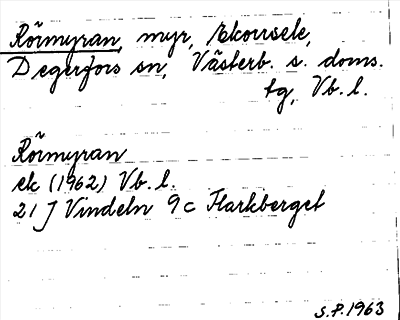 Rörmyran, myr, Ekorrsele,
Degerfors sn, Västerb. s. doms.
tg, Vb. l.
Rörmyran
ek (1962) Vb. l.
21 J Vindeln 9 c Flarkberget
S.P. 1963